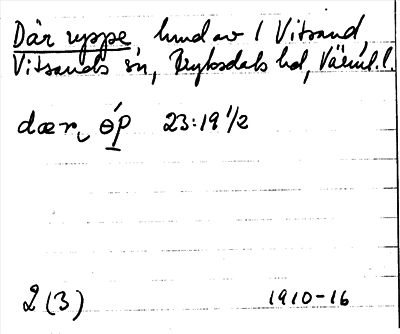 Där uppe, hmd av 1 Vitsand,
Vitsands sn, Fryksdals hd, Värml. l.
dær͜ ɵ́p 23:19 1/2
2 (3) 1910-16